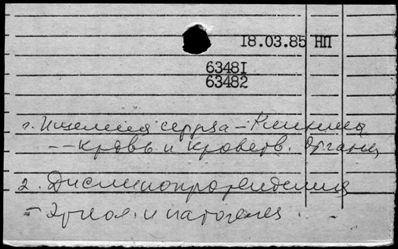 18.03.85 НП
63481
63482
1. Ишемия сердца – Клиника
-- Кровь и кроветв. органы
2. Дислипопротеидемия
– Этиол. и патогенез.